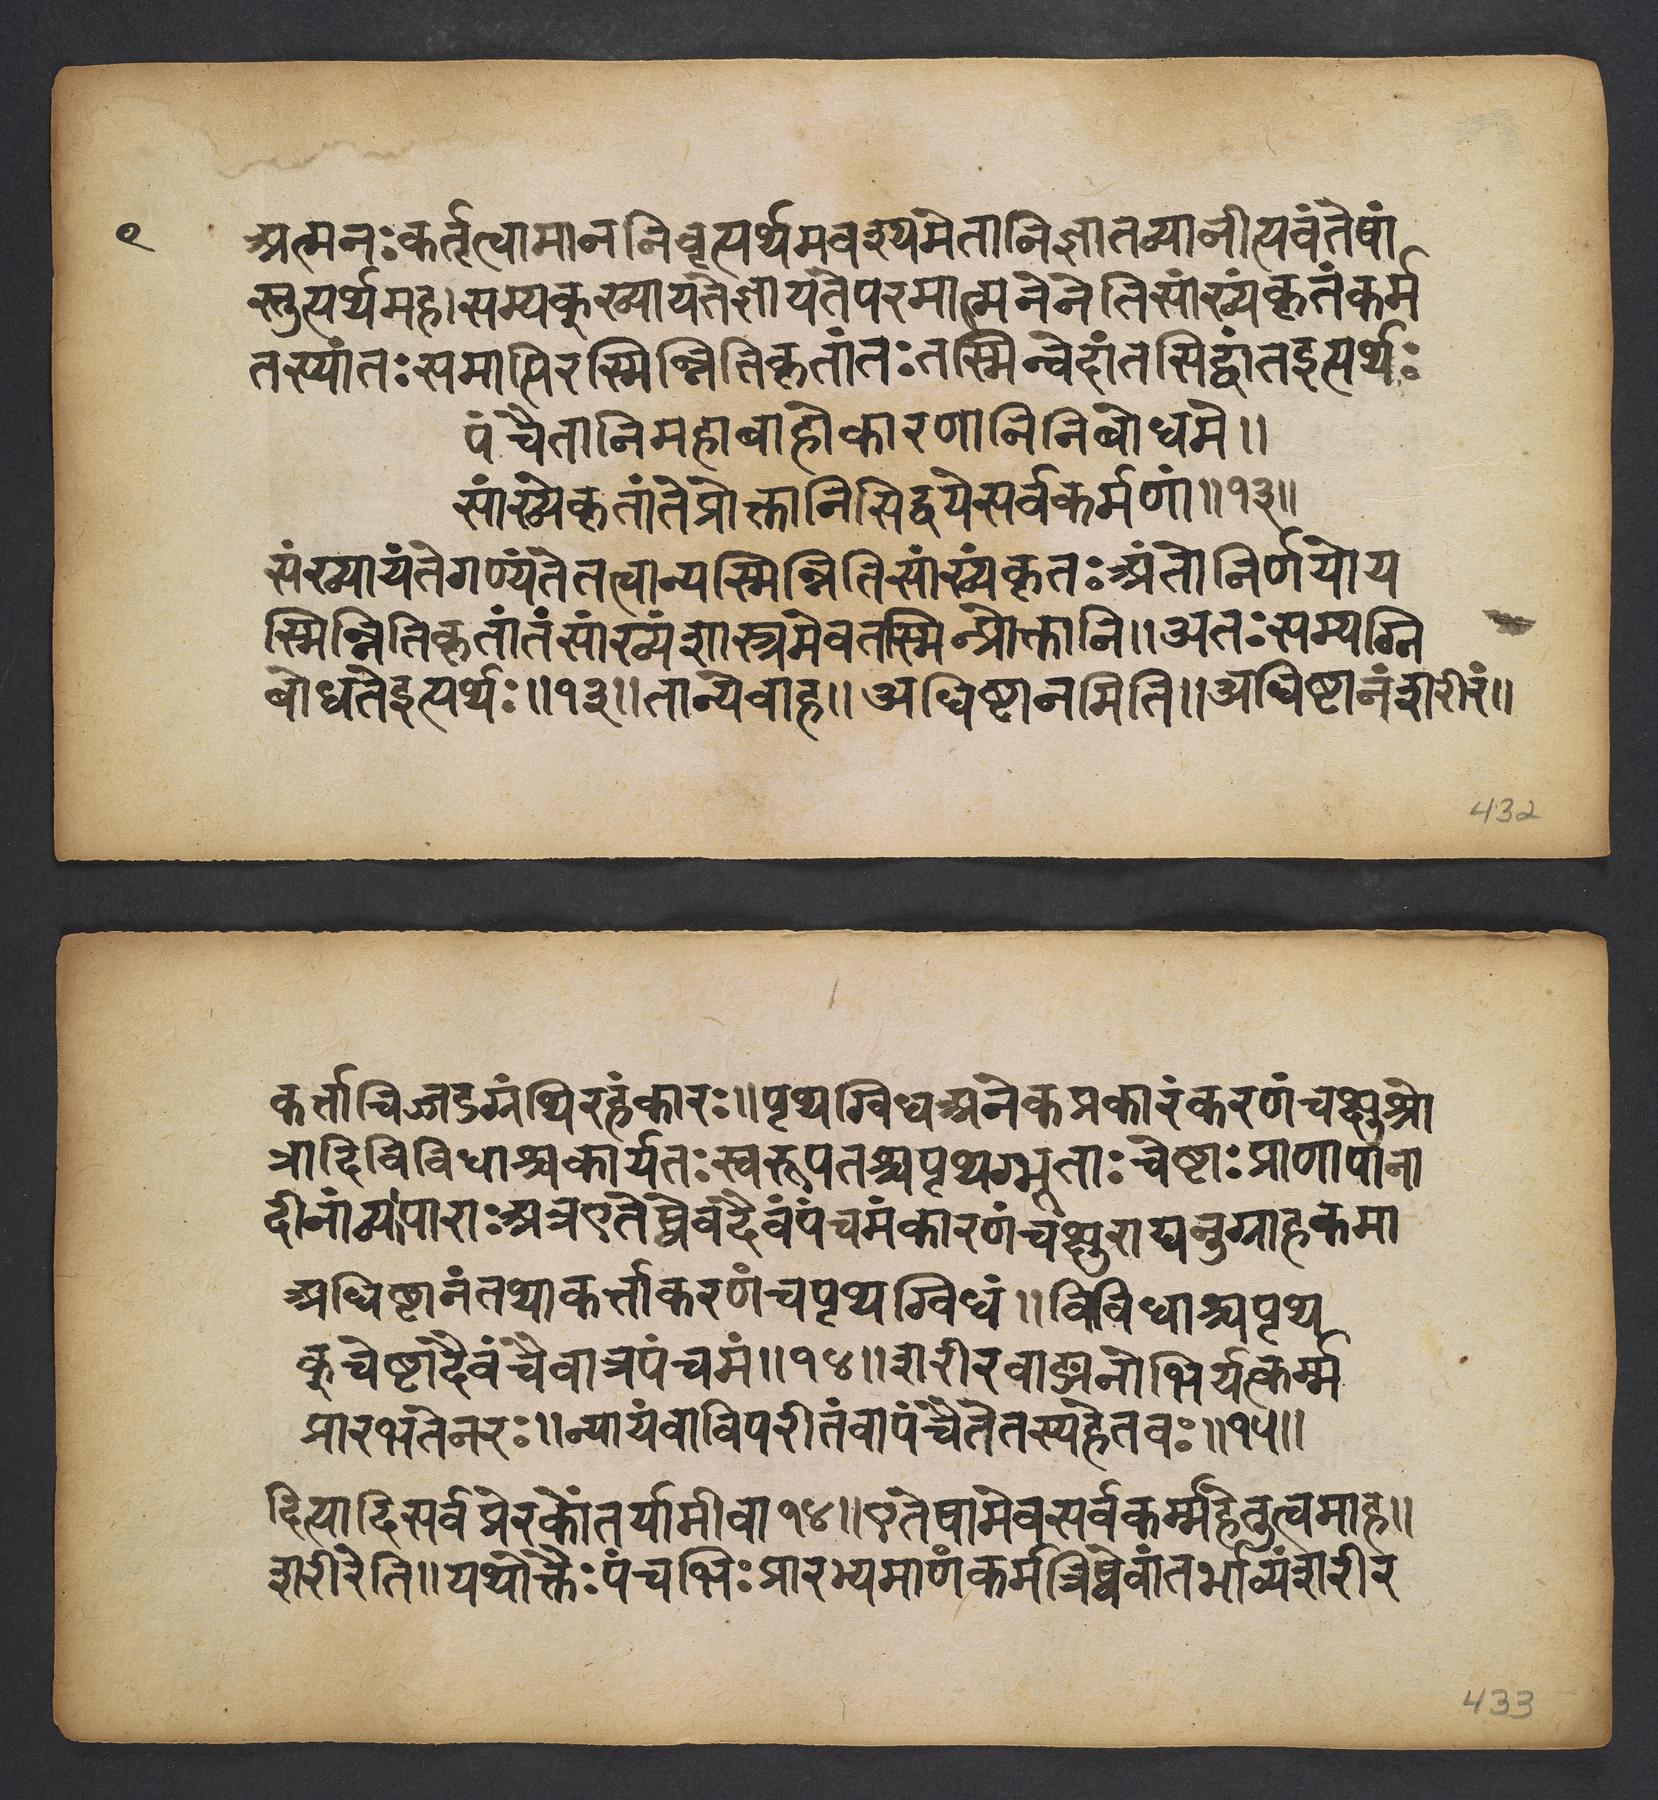 ९
अत्मनःकर्तृत्वामाननिवृत्यर्थमवश्यमेतानिज्ञातव्यानीत्पवंतेषां
स्तुत्पर्थमह।सम्यक्ख्यायतेज्ञायंतेपरमात्मनेनेतिसांख्यंकृतंकर्म
तस्यांतःसमाप्तिरस्मिन्नितिकृतांतःतस्मिन्वेदांतसिद्धांतइत्पर्थः
पंचैतानिमहाबाहोकारणानिनिबोधमे॥
सांख्येकृतांतेप्रोक्तानिसिद्धयेसर्वकर्मणां॥१३॥
संख्यायंतेगण्यंतेतत्वान्यस्मिन्नितिसांख्यंकृतःअंतोनिर्णयोय
स्मिन्नितिकृतांतंसांख्यंशास्त्रमेवतस्मिन्प्रोक्तानि॥अतःसम्यग्नि
बोधतेइत्पर्थः॥१३॥तान्येवाह॥अधिष्टानमिति॥अधिष्टानंशरीरं॥
432
कर्त्ताचिज्जडग्रंथिरहंकारः॥पृथग्विधअनेकप्रकारंकरणंचक्षुश्रो
त्रादिविविधाश्चकार्यतःस्वरूपतश्चपृथग्भूताःचेष्टाःप्राणापाना
दीनांव्यांपाराःअत्रएतेष्वेवंदैवंपंचमंकारणंचंक्षुराद्यनुग्राहकमा
अधिष्टानंतथाकर्त्ताकरणंचपृथग्विधं॥विविधाश्चपृथ
क्चेष्टांदैवंचैवात्रपंचमं॥१४॥शरीरवाङ्मनोभिर्यत्कर्म्म
प्रारभतेनरः॥न्यायंवाविपरीतंवापंचैतेतस्यहेतवः॥१५॥
दित्यादिसर्वप्रेरकोंतर्यामीवा१४॥एतेषामेवसर्वकर्म्महेतुत्वमाह॥
शरीरेति॥यथोक्तैःपंचभिःप्रारभ्यमाणंकर्मत्रिष्वेवांतर्भाव्यंशरीर
433